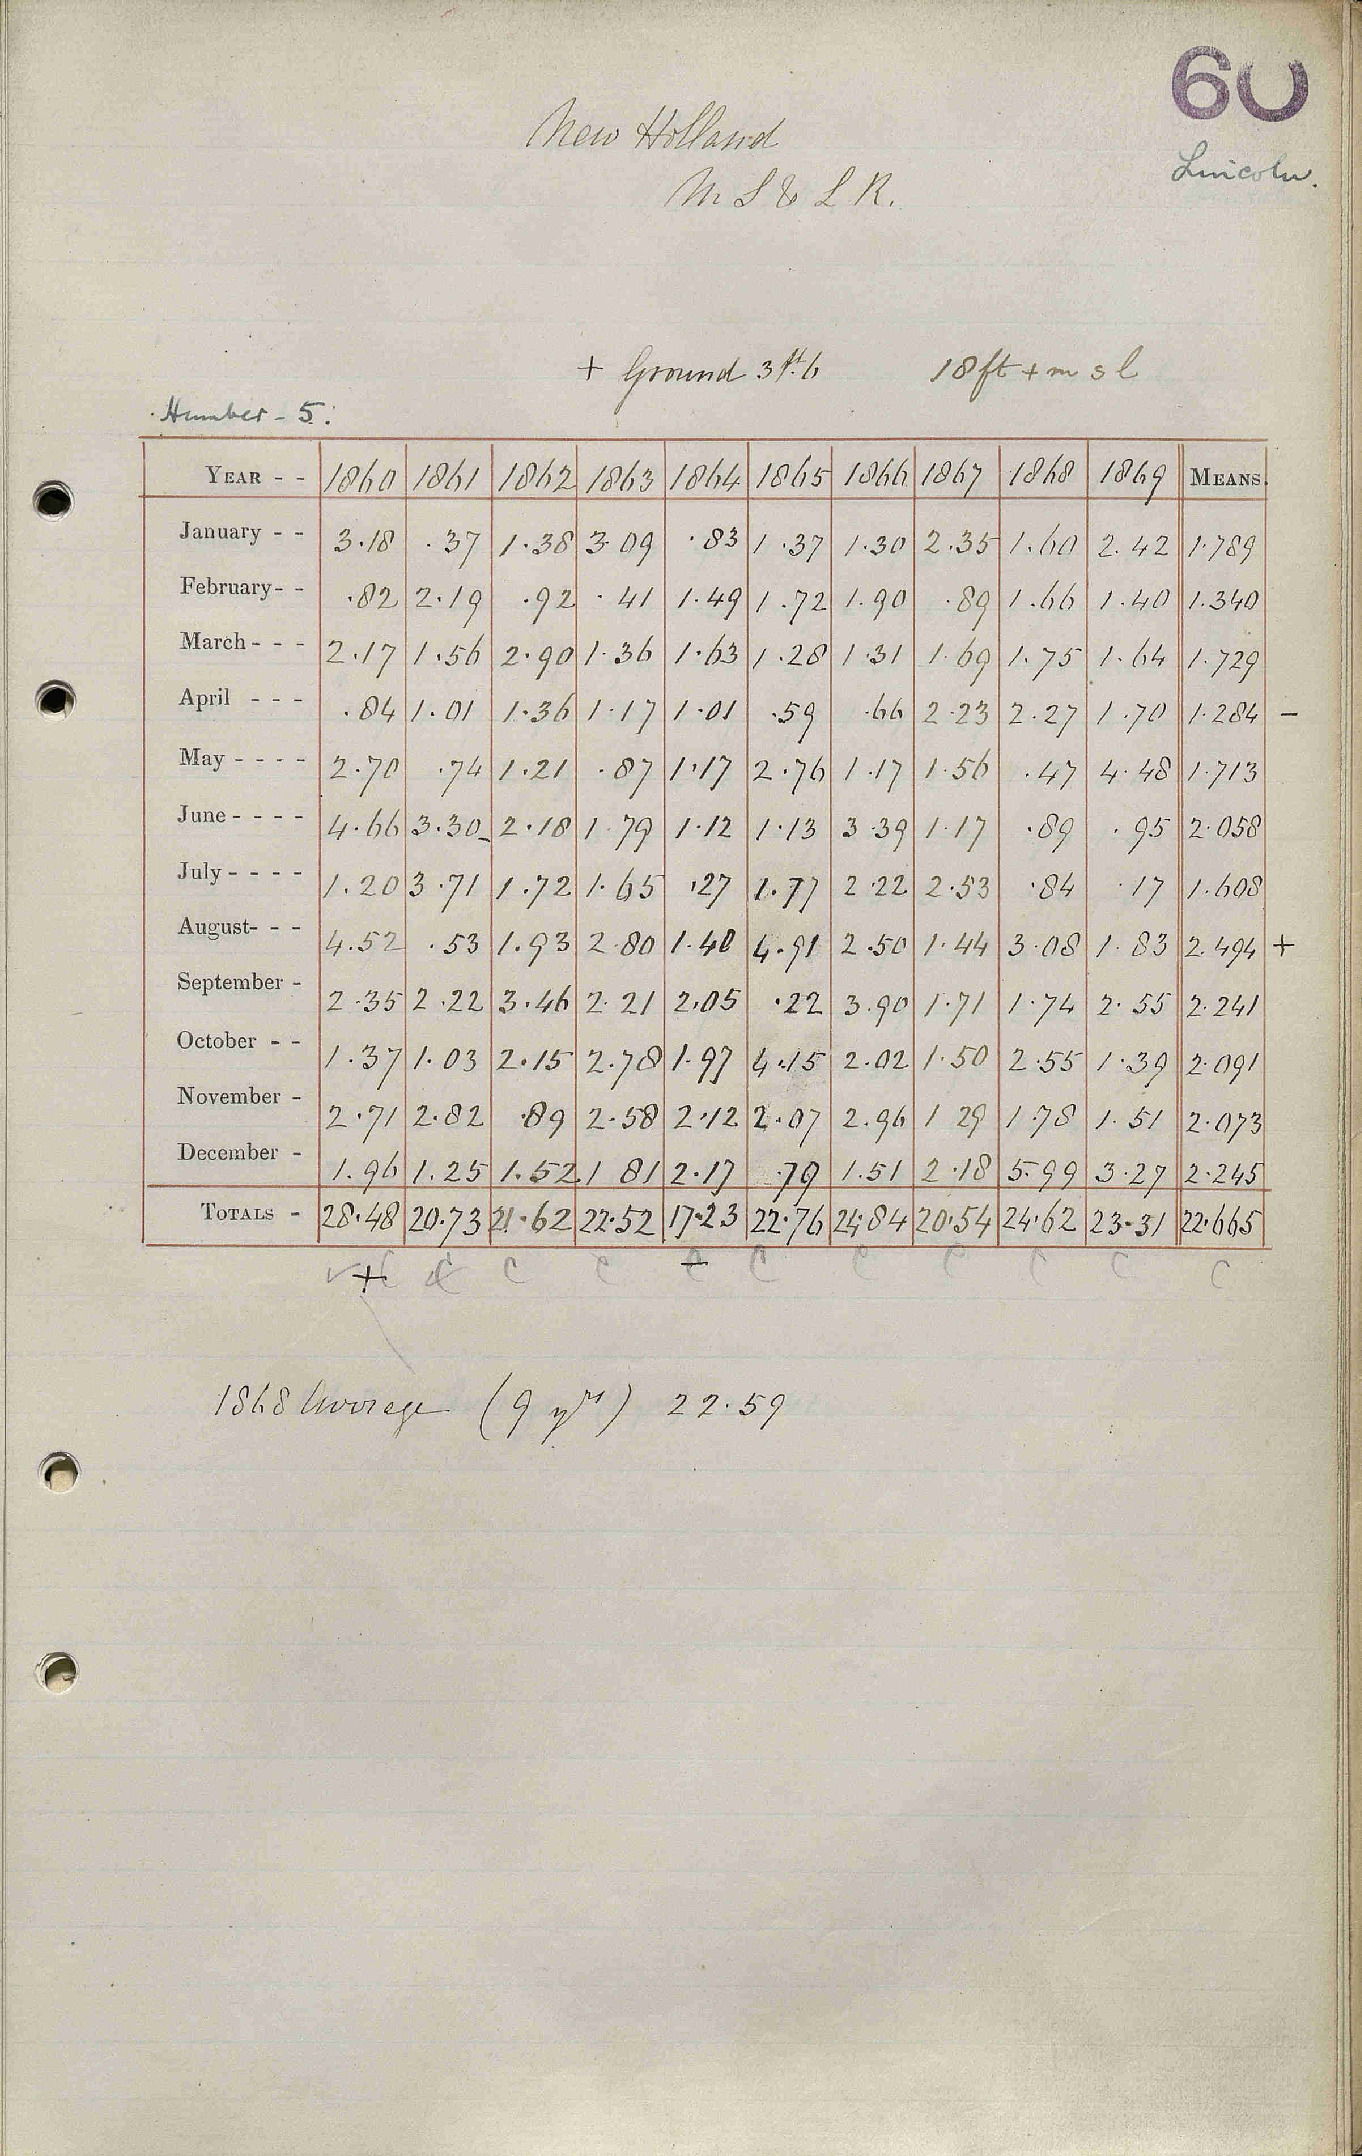 60
Lincoln.
New Holland
M S & L R.
+ Ground 3ft. 6 18ft + m s l
Humber - 5.
YEAR - - 1860 1861 1862 1863 1864 1865 1866 1867 1868 1869 MEANS.
January - - 3.18 .37 1.38 3.09 .83 1.37 1.30 2.35 1.60 2.42 1.789
February - - .82 2.19 .92 .41 1.49 1.72 1.90 .89 1.66 1.40 1.340
March - - - 2.17 1.56 2.90 1.36 1.63 1.28 1.31 1.69 1.75 1.64 1.729
April - - - .84 1.01 1.36 1.17 1.01 .59 .66 2.23 2.27 1.70 1.284 -
May - - - - 2.70 .74 1.21 .87 1.17 2.76 1.17 1.56 .47 4.48 1.713
June - - - - 4.66 3.30 2.18 1.79 1.12 1.13 3.39 1.17 .89 .95 2.058
July - - - - 1.20 3.71 1.72 1.65 .27 1.77 2.22 2.53 .84 .17 1.608
August - - - 4.52 .53 1.93 2.80 1.40 4.91 2.50 1.44 3.08 1.83 2.494 +
September - 2.35 2.22 3.46 2.21 2.05 .22 3.90 1.71 1.74 2.55 2.241
October - - 1.37 1.03 2.15 2.78 1.97 4.15 2.02 1.50 2.55 1.39 2.091
November - 2.71 2.82 .89 2.58 2.12 2.07 2.96 1 29 1.78 1.51 2.073
December - 1.96 1.25 1.52 1 81 2.17 .79 1.51 2.18 5.99 3.27 2.245
TOTALS - 28.48 20.73 21.62 22.52 17.23 22.76 24.84 20.54 24.62 23.31 22.665
+ C C C C - C C C C C C
1868 Average (9 yrs) 22.59